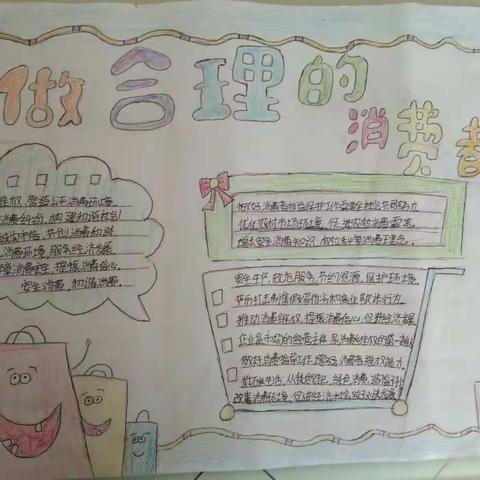 做合理的
消费者
维权，营造公平消费环境。
消费纠纷，构建和谐社会
诚实守信，共创消费和谐
消费环境，服务经济发展
消费安全，提振消费信心。
安全消费，和谐消费。
做好消费者权益保护工作需要全社会共同努力
优化农村市场环境，促进农村消费需求。
增长安全消费知识，树立科学消费理念。
安全生产，规范服务，节约资源，保护环境。
严厉打击制假售假和商业欺诈行为。
推动消费维权，提振消费信心，促进经济发展
企业是市场的经营主体，是消费维权的第一
做好消费指导工作，增强消费者维权能力。
低碳生活，从我做起，绿色消费
改善消费环境，促进经济社会